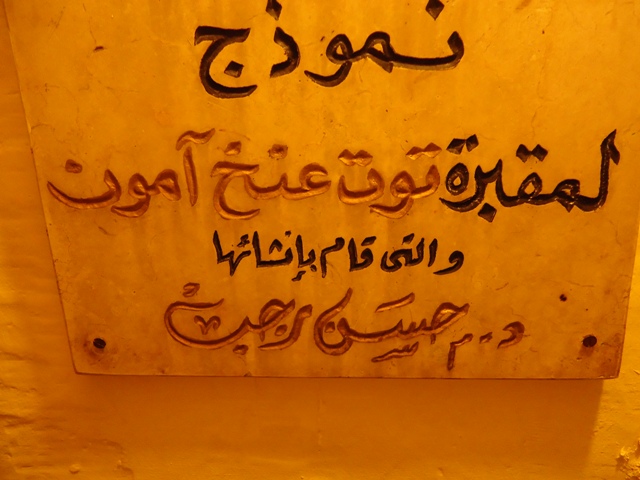 نموذج
لمقبرة توت عنخ آمون
والتى قام بإنشائها
د.م حسن رجب